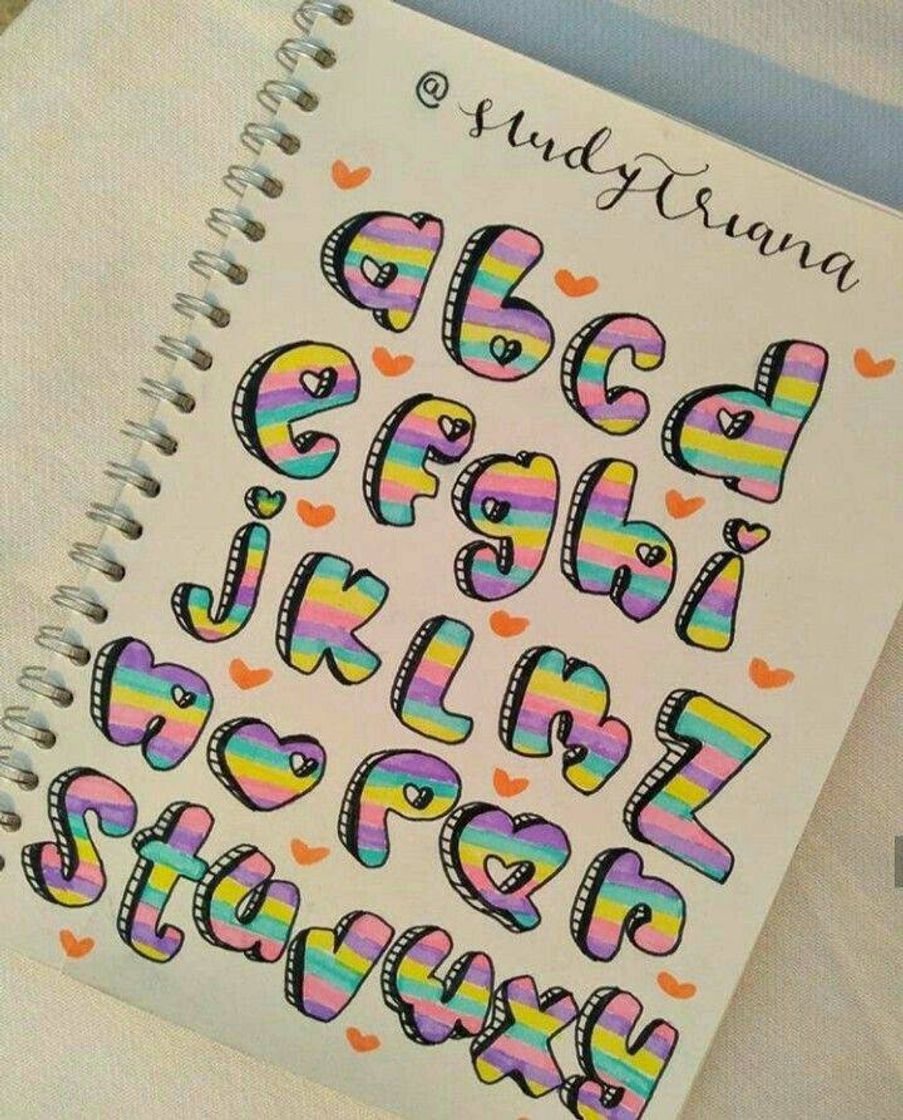 @studyTriana
a b c d
e f g h i
j k L m z
n o p q r
s t u v w x y